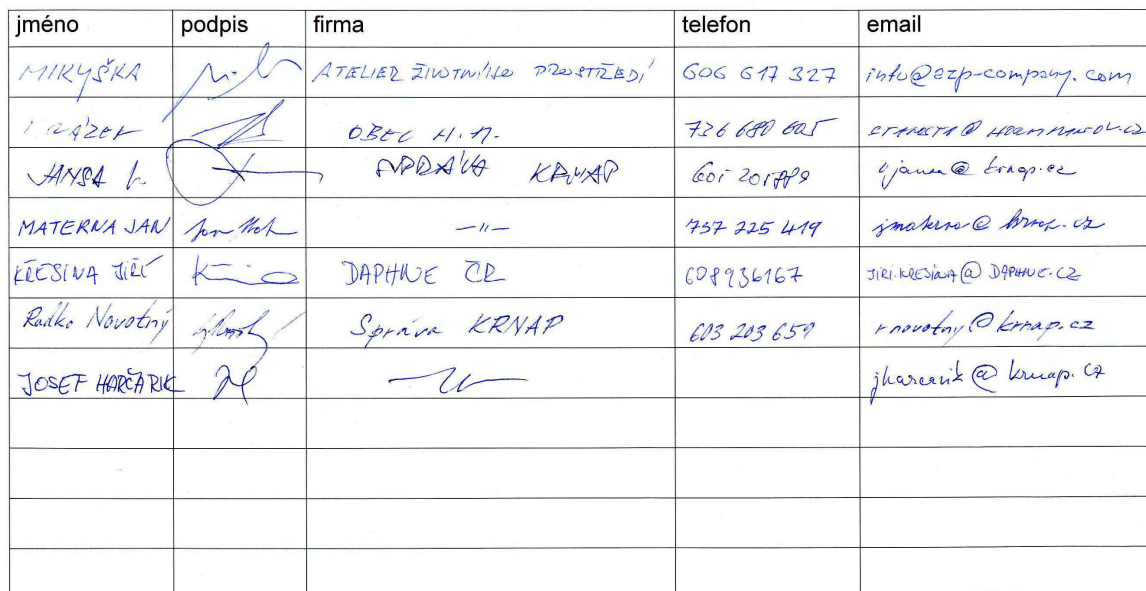 jméno podpis firma telefon email
MIKYŠKA ATELIER ŽIVOTNÍHO PROSTŘEDÍ 606 617 327 info@ezp-company.com
OBEC H.M. 726 680 605
JANSA L. SPRÁVA KRNAP ljansa@krnap.cz
MATERNA JAN —〃— 737 225 419 jmaterna@krnap.cz
KŘESINA JIŘÍ DAPHNE ČR 608936167 JIRI.KRESINA@DAPHNE.CZ
Radko Novotný Správa KRNAP 603 203 659 rnovotny@krnap.cz
JOSEF HARČARIK —〃— jharcarik@krnap.cz